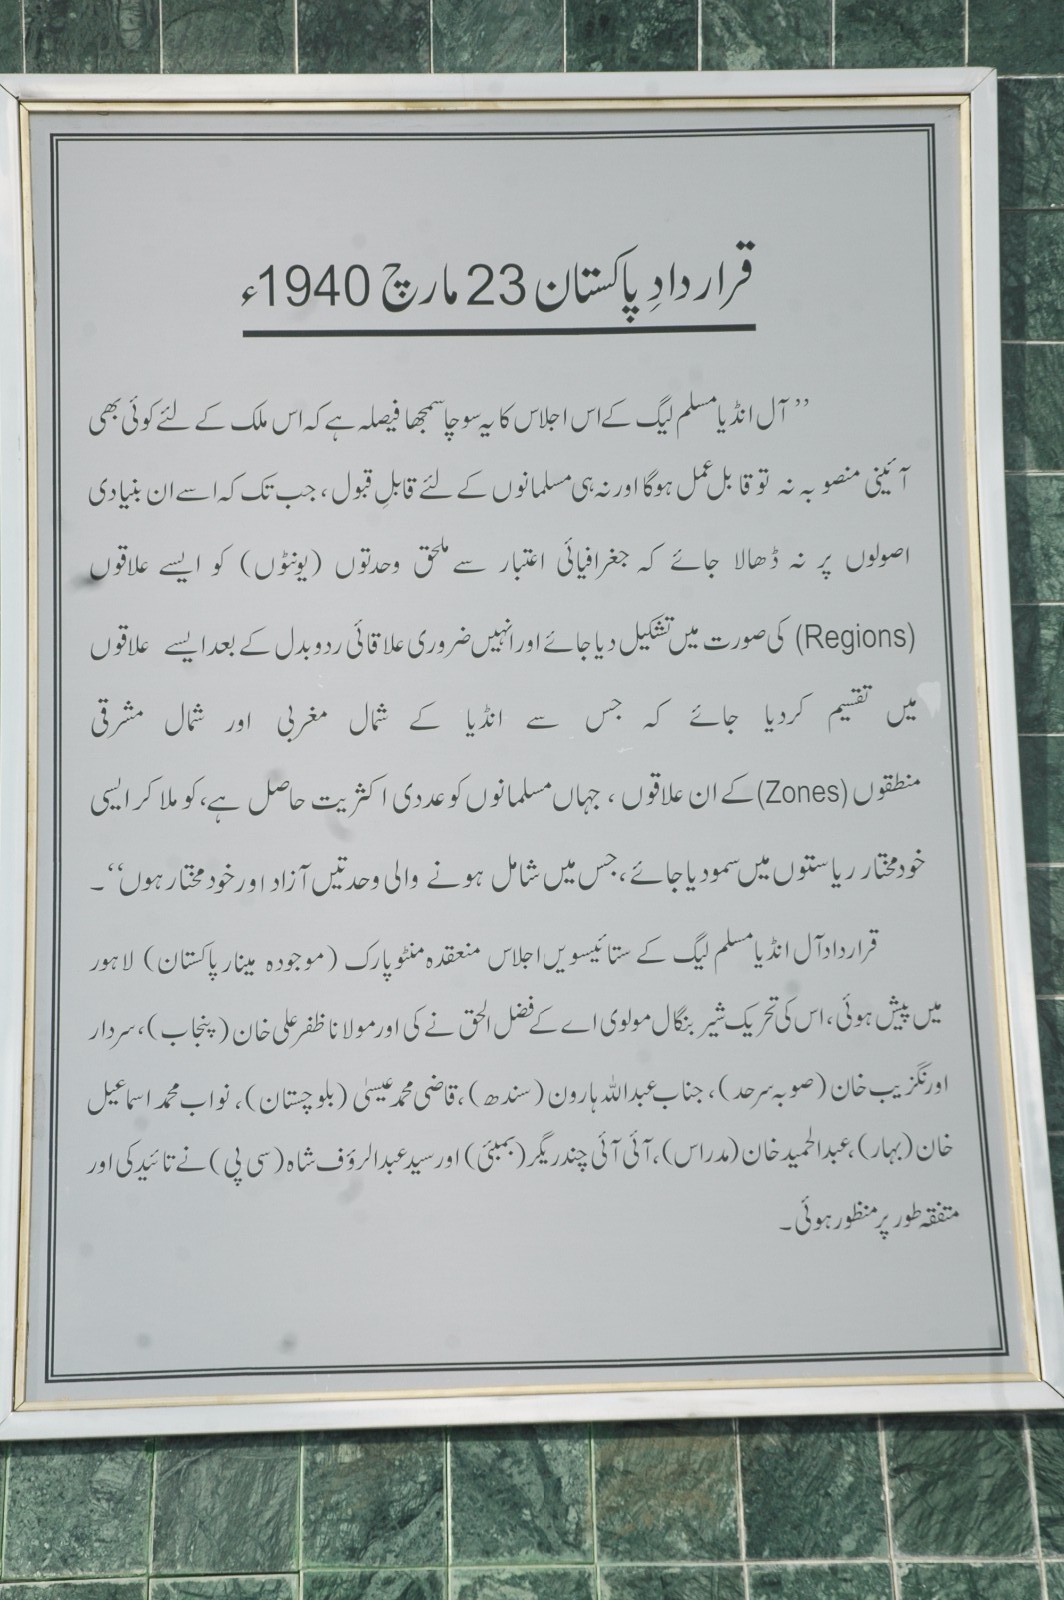 قراردادِ پاکستان 23 مارچ 1940ء
’’ آل انڈیا مسلم لیگ کے اس اجلاس کا یہ سوچا سمجھا فیصلہ ہے کہ اس ملک کے لئے کوئی بھی
آئینی منصوبہ نہ تو قابل عمل ہوگا اور نہ ہی مسلمانوں کے لئے قابلِ قبول، جب تک کہ اسے ان بنیادی
اصولوں پر نہ ڈھالا جائے کہ جغرافیائی اعتبار سے ملحق وحدتوں (یونٹوں) کو ایسے علاقوں
(Regions) کی صورت میں تشکیل دیا جائے اور انہیں ضروری علاقائی ردوبدل کے بعد ایسے علاقوں
میں تقسیم کردیا جائے کہ جس سے انڈیا کے شمال مغربی اور شمال مشرقی
منطقوں (Zones) کے ان علاقوں ، جہاں مسلمانوں کو عددی اکثریت حاصل ہے، کو ملا کر ایسی
خودمختار ریاستوں میں سمو دیا جائے، جس میں شامل ہونے والی وحدتیں آزاد اور خودمختار ہوں‘‘۔
قرارداد آل انڈیا مسلم لیگ کے ستائیسویں اجلاس منعقدہ منٹو پارک (موجودہ مینار پاکستان) لاہور
میں پیش ہوئی، اس کی تحریک شیر بنگال مولوی اے کے فضل الحق نے کی اور مولانا ظفر علی خان (پنجاب)، سردار
اورنگزیب خان (صوبہ سرحد)، جناب عبداللہ ہارون (سندھ)، قاضی محمد عیسیٰ (بلوچستان)، نواب محمد اسماعیل
خان (بہار)، عبدالحمید خان (مدراس)، آئی آئی چندریگر (بمبئی) اور سید عبدالرؤف شاہ (سی پی) نے تائید کی اور
متفقہ طور پر منظور ہوئی۔